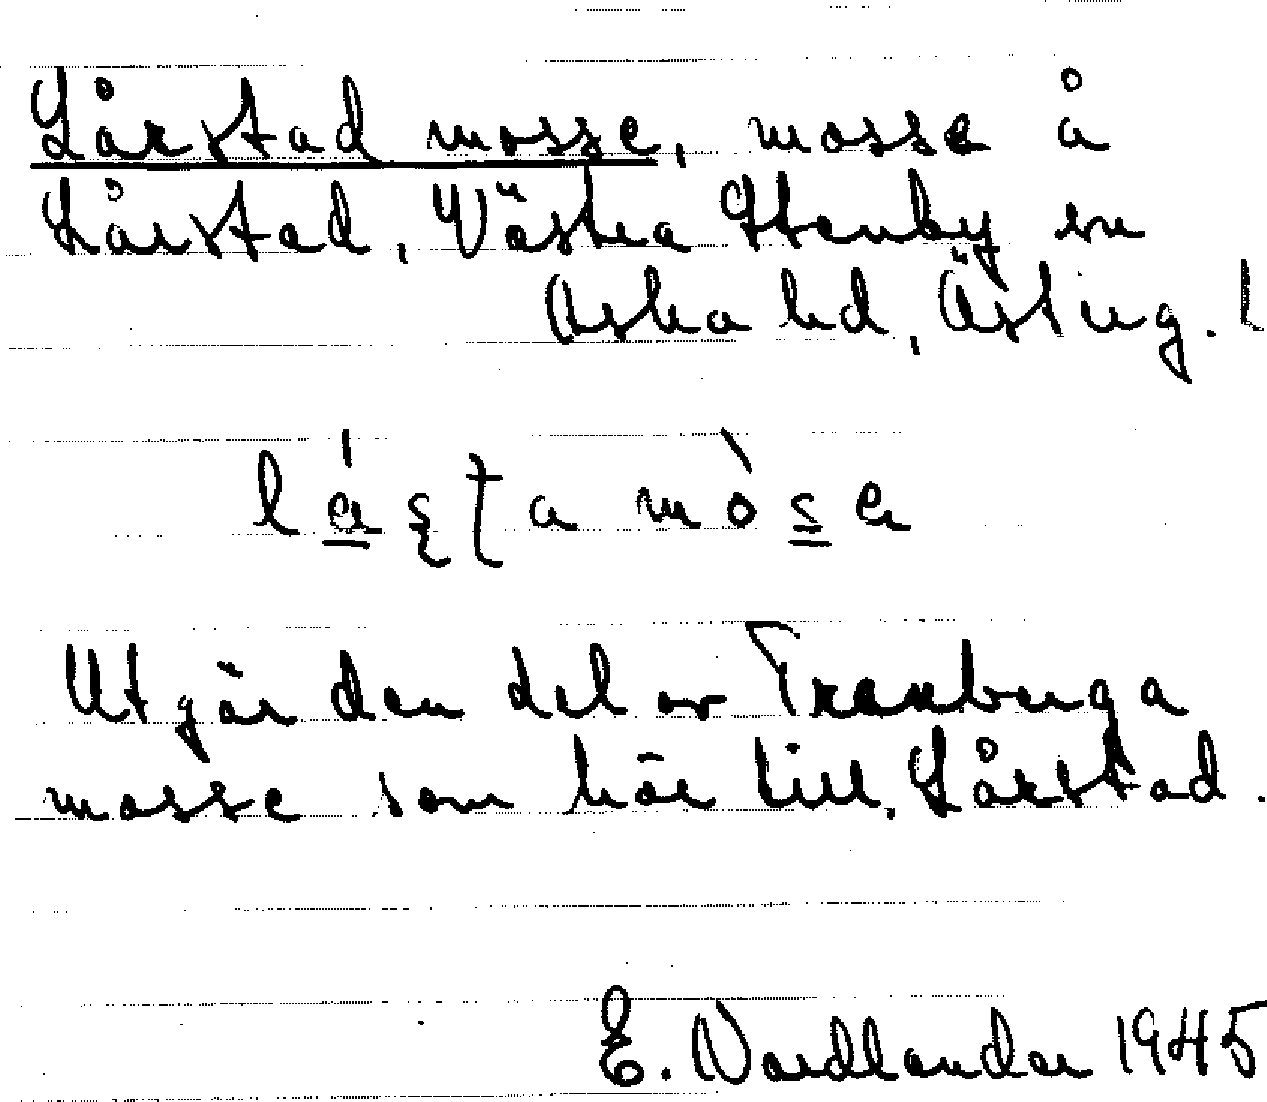 Lårstad mosse, mosse å
Lårstad, Västra Stenby sn
Aska hd, Österg. l
lá̱ʂʈa mòs̱e
Utgör den del av Tranberga
mosse som hör till Lårstad.
E. Nordlander 1945